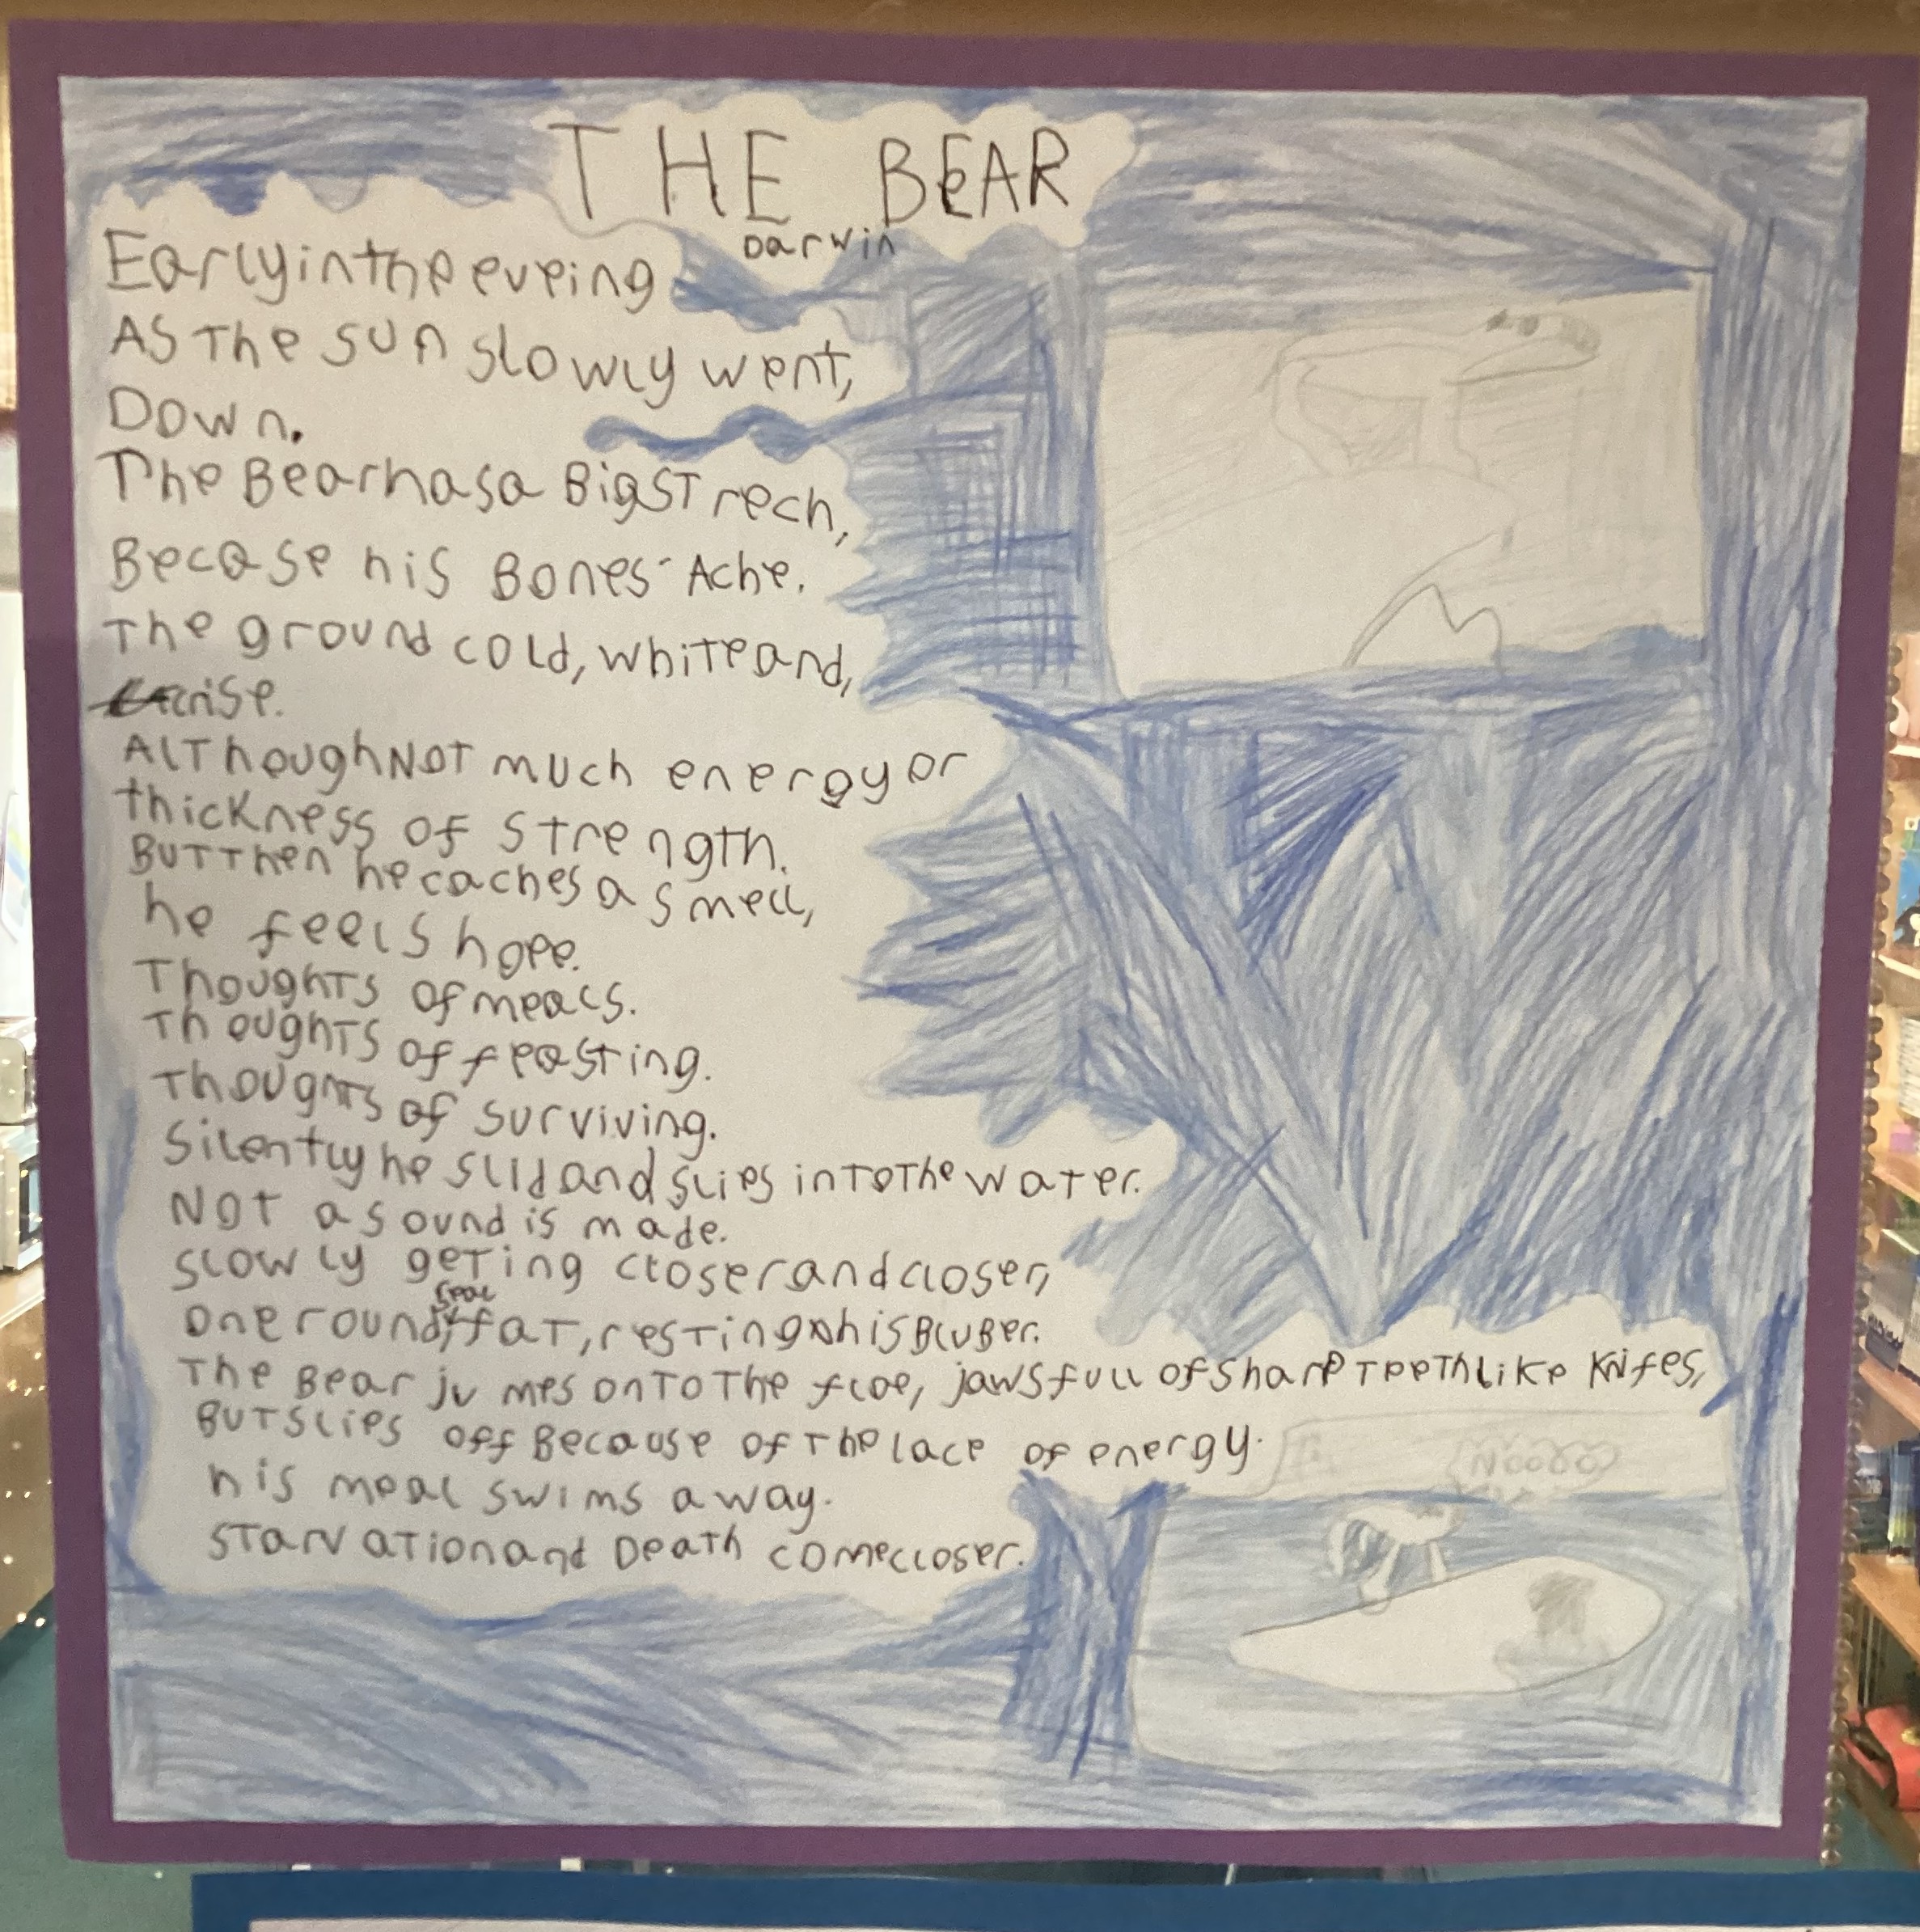 THE BEAR
Darwin
Early in the eveing
As The sun slowly went,
Down.
The Bear has a Big STrech,
Becase his Bones Ache.
The ground cold, white and,
crise.
AlThough NOT much energy or
thickness of strength.
BUT Then he caches a smell,
he feels hope.
ThoughTs of meals.
ThoughTs of feasting.
ThoughTs of surviving.
Silently he slid and slips inTo The water.
NOT a sound is made.
slowly geTing closer and closer,
seal
one round, faT, resTing on his BluBer.
The Bear jumps onTo The floe, jaws full of sharp TeeTh like knifes,
BUT slips off Because of The lace of energy.
his meal swims away.
STarvation and Death come closer.
Nooooo